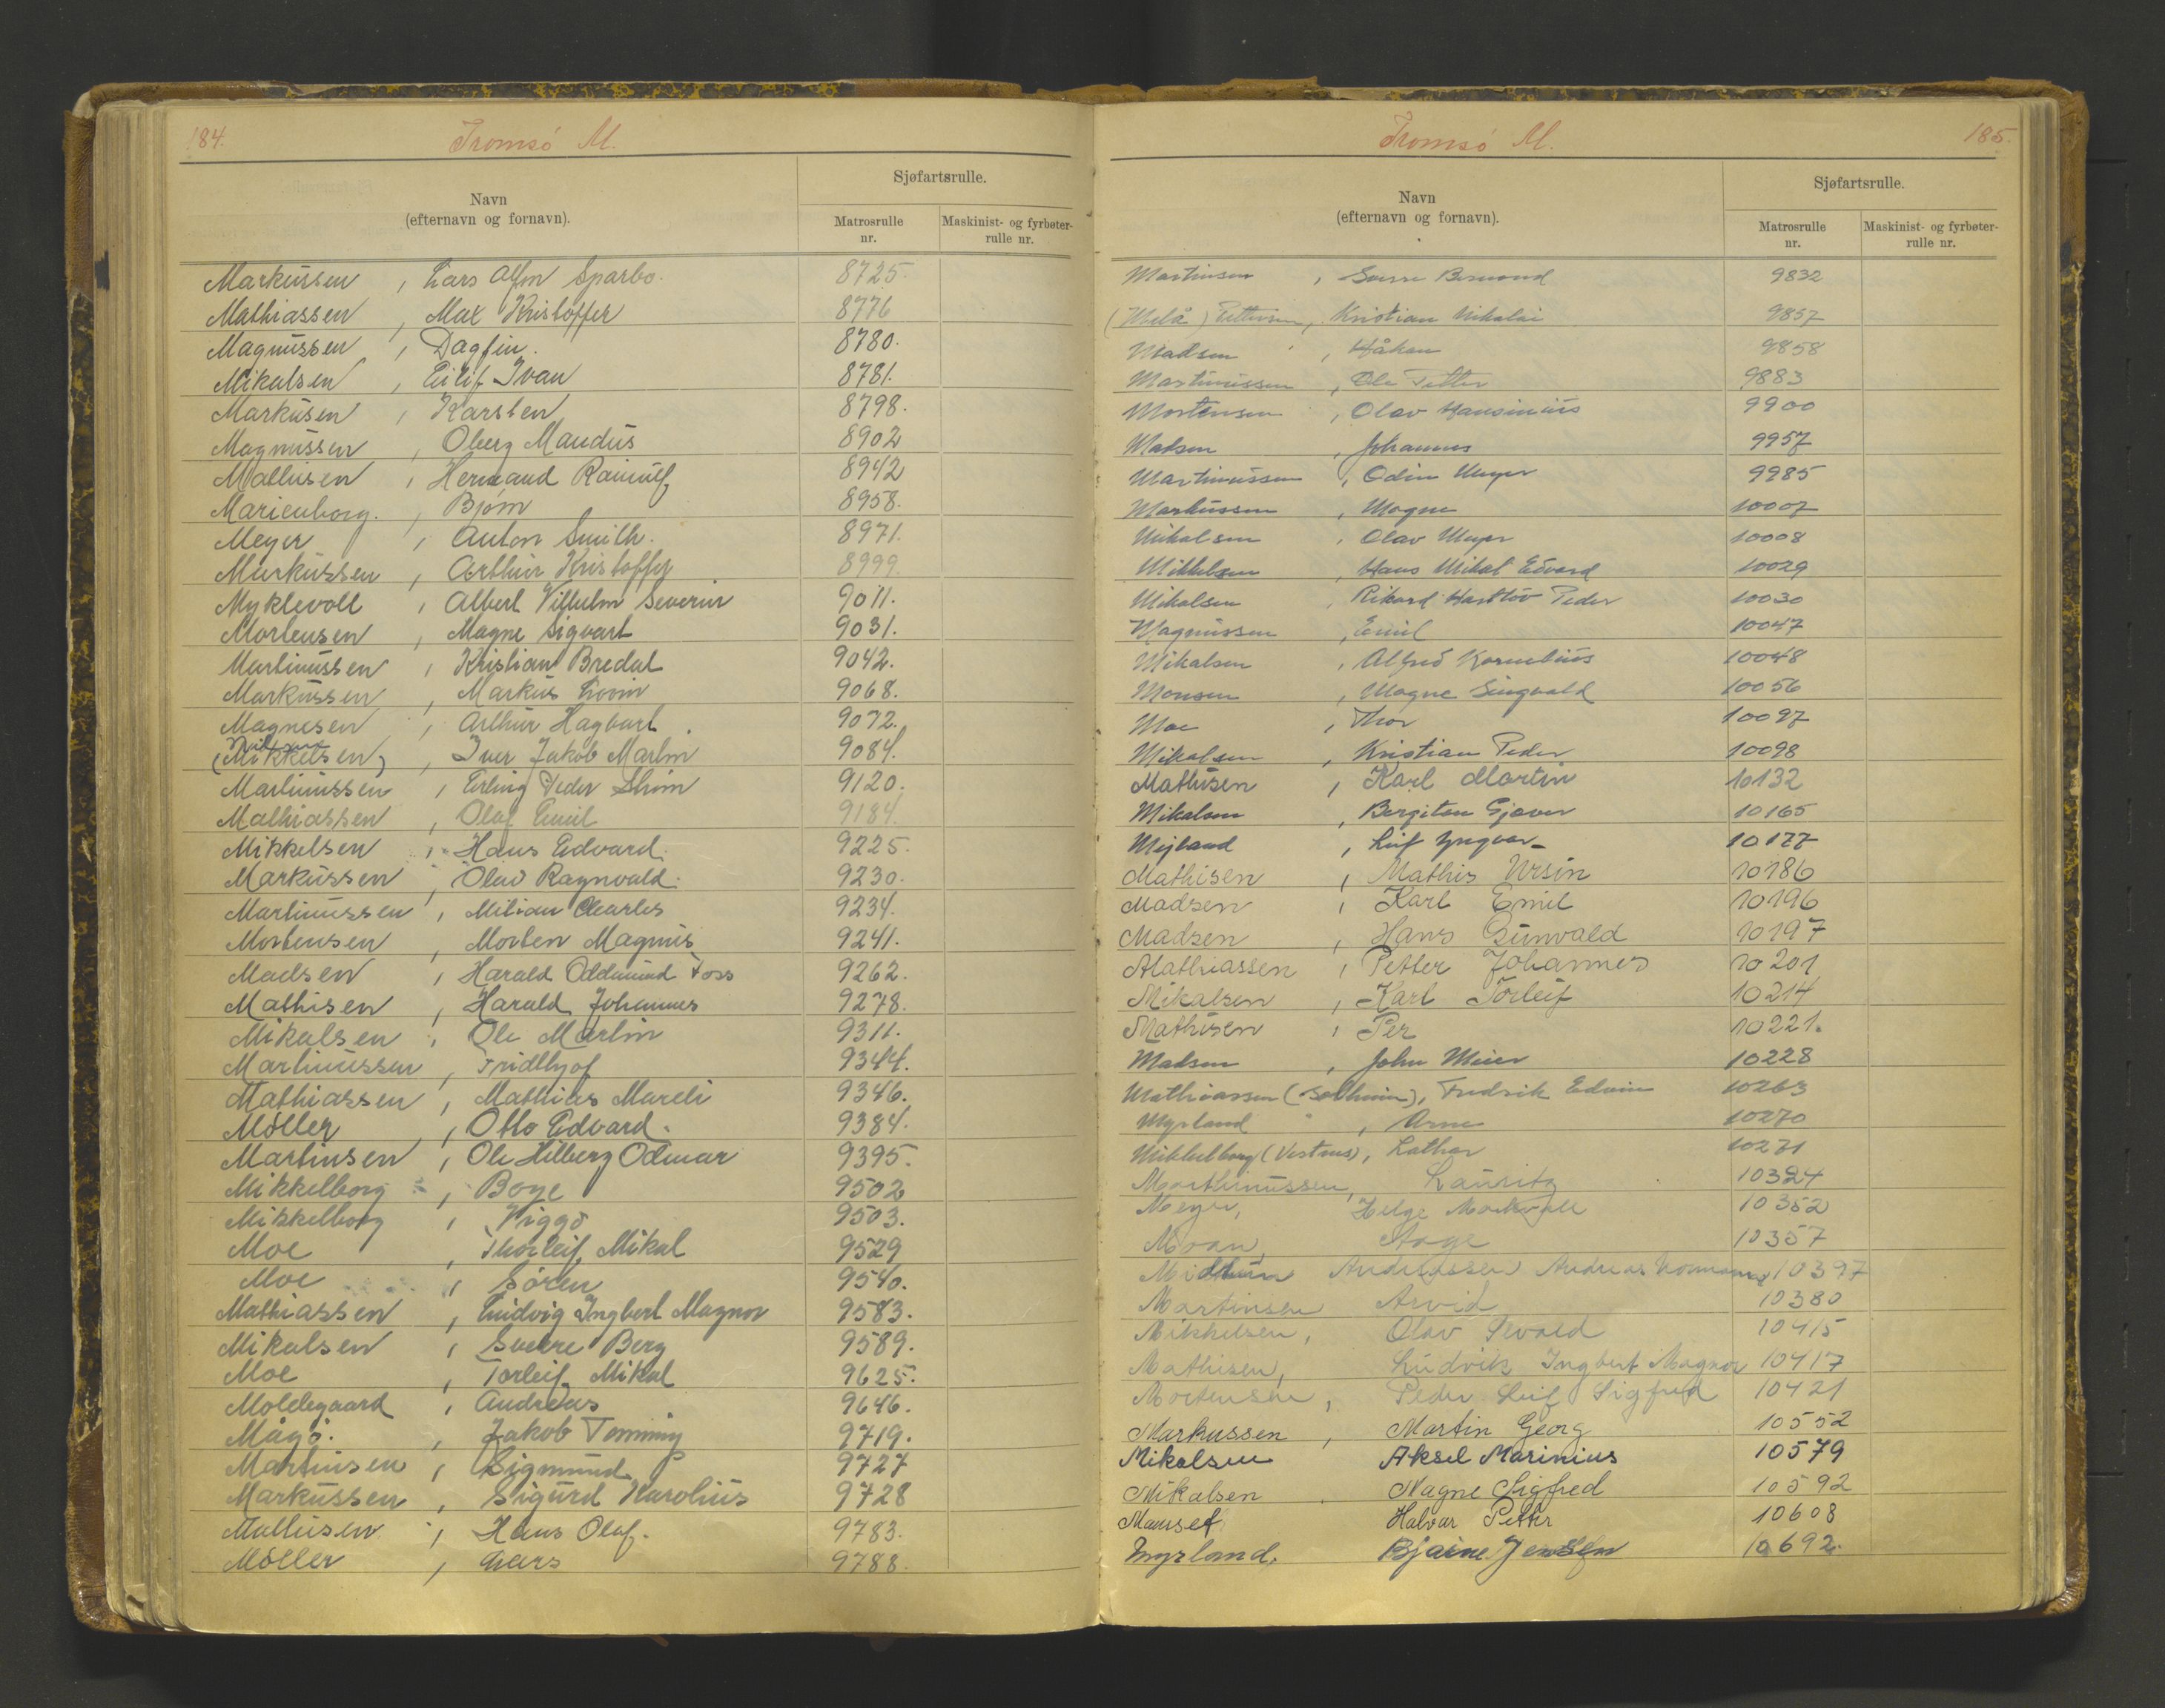 184.
Tromsø M.
Navn
(efternavn og fornavn).
Sjøfartsrulle.
Matrosrulle
nr.
Maskinist- og fyrbøter-
rulle nr.
Markussen, Lars Alfin Sparbo. 8725.
Mathiassen, Max Kristoffer 8776
Magnussen, Dagfin. 8780.
Mikalsen, Eilif Ivan 8781.
Markusen, Karsten 8798.
Magnussen, Oberg Maudus 8902
Mathisen, Hermand 8942
Marienborg., Bjørn 8958.
Meyer, Anton Smith. 8971.
Markussen, Arthur Kristoffer 8999.
Myklevoll, Albert Vilhelm Severin 9011.
Mortensen, Magne Sigvart 9031.
Martinussen, Kristian Bredal 9042.
Markussen, Markus 9068.
Magnesen, Arthur Hagbart 9072.
(Mikkelsen), Iver Jakob Martin 9084.
Martinussen, Erling Peder Strøm 9120.
Mathiassen, Olaf Emil 9184.
Mikkelsen, Hans Edvard. 9225.
Markussen, Olav Ragnvald. 9230.
Martinussen, Milian Charles 9234.
Mortensen, Morten Magnus 9241.
Madsen, Harald Oddmund Foss 9262.
Mathisen, Harald Johannes 9278.
Mikalsen, Ole Martin 9311.
Martinussen, Fridthjof 9344.
Mathiassen, Mathias Mareli 9346.
Möller, Otto Edvard. 9384.
Martinsen, Ole Hilberg Odmar 9395.
Mikkelborg, Boye 9502
Mikkelborg, Viggo 9503.
Moe, Thorleif Mikal 9529
Moe, Sören 9540.
Mathiassen, Ludvig Ingbert Magnor 9583.
Mikalsen, Sverre Berg 9589.
Moe, Torleif Mikal 9625.
Moldegaard, Andreas 9646.
Mågö., Jakob Tømming 9719.
Martinsen, Sigmund 9727
Markussen, Sigurd Karolius 9728
Mathisen, Hans Olaf. 9783.
Möller, Lars 9788.
Tromsø M.
185.
Navn
(efternavn og fornavn).
Sjøfartsrulle.
Matrosrulle
nr.
Maskinist- og fyrbøter-
rulle nr.
Martinsen, Sverre Bernond 9832
(Melå) Pettersen, Kristian Nikolai 9857
Madsen, Håkon 9858
Martinussen, Ole Petter 9883
Mortensen, Olav Hansinius 9900
Madsen, Johannes 9957
Martinussen, Odin Meyer 9985
Markussen, Mogne 10007
Mikalsen, Olav Meyer 10008
Mikkelsen, Hans Mikal Edvard 10029
Mikalsen, Rikard Hartløv Peder 10030
Magnussen, Emil 10047
Mikalsen, Alfred Kornelius 10048
Monsen, Magne Singvald 10056
Moe, Thor 10097
Mikalsen, Kristian Peder 10098
Mathisen, Karl Martin 10132
Mikalsen, Bergiton Gjæver 10165
Mejland, Leif Yngvar 10177
Mathisen, Mathis Ursin 10186
Madsen, Karl Emil 10196
Madsen, Hans Gunvald 10197
Mathiassen, Petter Johannes 10201
Mikalsen, Karl Torleif 10214
Mathisen, Per 10221.
Madsen, John Meier 10228
Mathiassen (Solheim), Fredrik Edvin 10263
Myrland, Arne 10270
Mikkelborg (Vestnes), Lothar 10271
Marthinussen, Lauritz 10324
Meyer, Helge 10352
Moan, Aage 10357
Midttun Andreassen Andreas Normann 10397
Martinsen Arvid 10380
Mikkelsen, Olav Sevald 10415
Mathisen, Ludvik Ingbert Magnor 10417
Mortensen, Peder Leif Sigfred 10421
Markussen, Martin Georg 10552
Mikalsen Aksel Marinius 10579
Mikalsen, Magne Sigfred 10592
Manset Halvar Petter 10608
Myrland, Bjarne Jensen 10692.